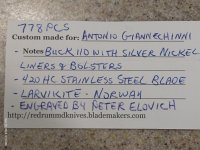 778 PCS
Custom made for: ANTONIO GIANNECHINNI
- Notes BUCK 110 WITH SILVER NICKEL
LINERS & BOLSTERS
- 420 HC STAINLESS STEEL BLADE
- LARVIKITE - NORWAY
- ENGRAVED BY PETER ELOVICH
http://redrummdknives.blademakers.com